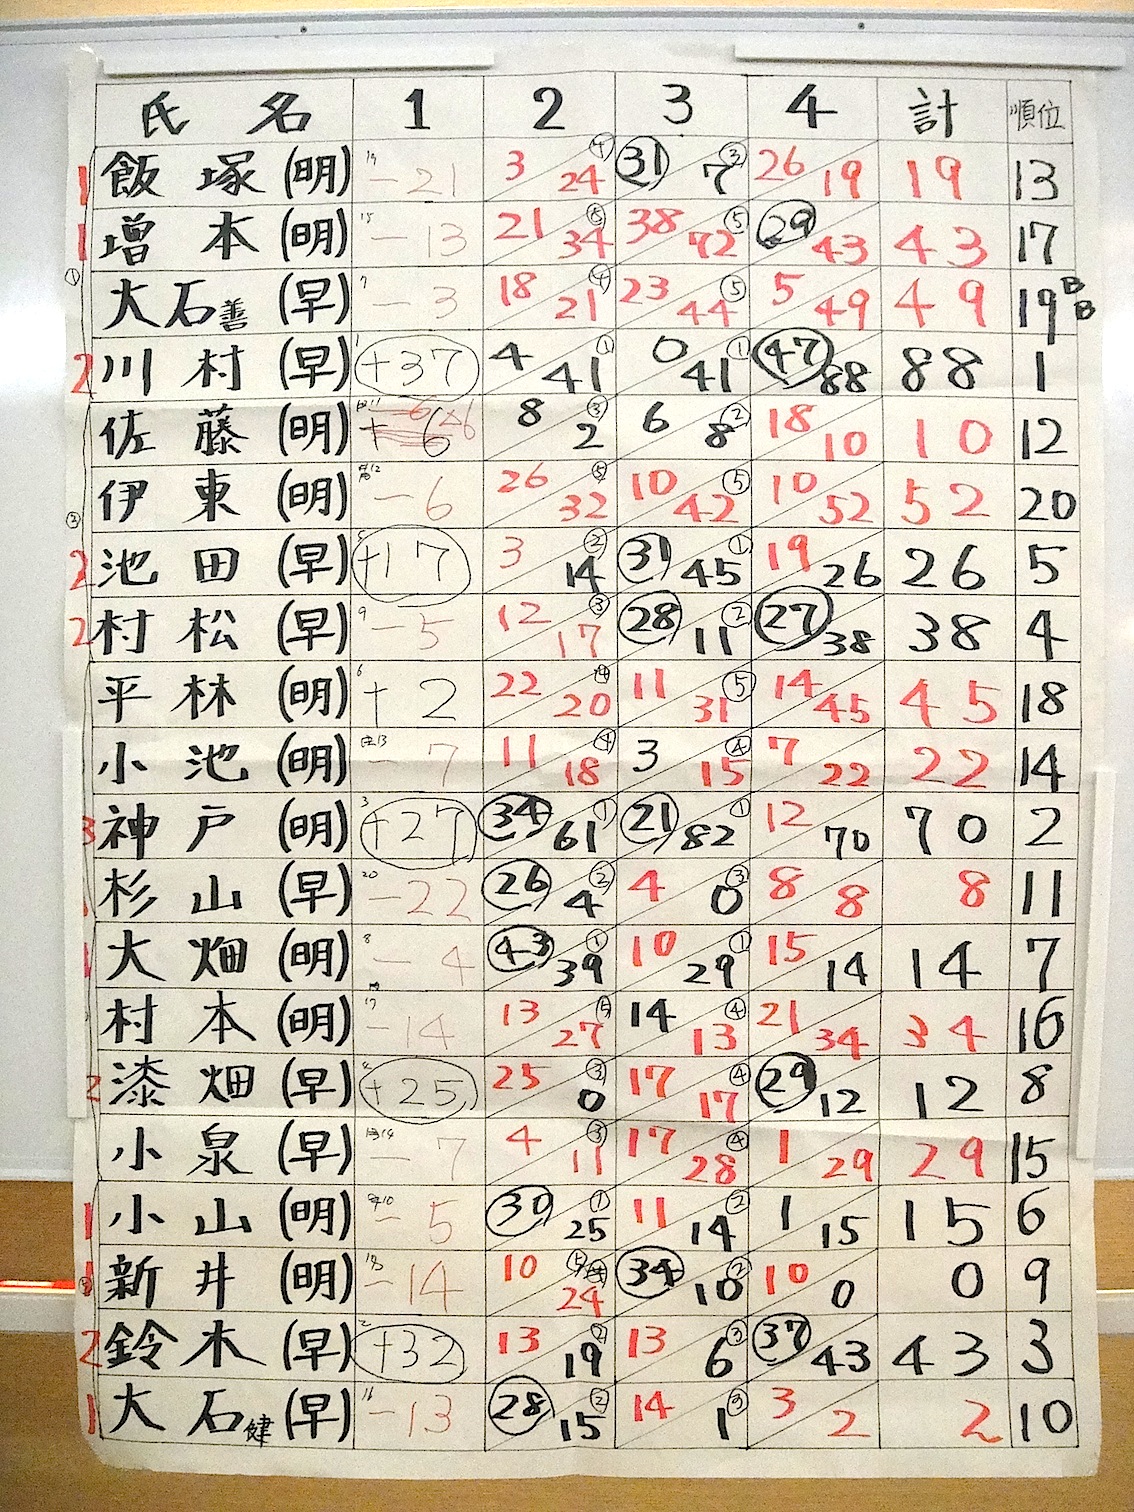 氏 名 1 2 3 4 計 順位
1 飯塚(明) 19 -21 3 24 ④ 31 7 ③ 26 19 19 13
1 増本(明) 15 -13 21 34 ⑤ 38 72 ⑤ 29 43 43 17
① 大石善(早) 7 -3 18 21 ④ 23 44 ⑤ 5 49 49 19 BB
2 川村(早) 1 +37 4 41 ① 0 41 ① 47 88 88 1
佐藤(明) 8 2 ③ 6 8 ② 18 10 10 12
伊東(明) -6 26 32 ⑤ 10 42 ⑤ 10 52 52 20
②
2 池田(早) +17 3 14 ② 31 45 ① 19 26 26 5
2 村松(早) 9 -5 12 17 ③ 28 11 ② 27 38 38 4
平林(明) 6 +2 22 20 ④ 11 31 ⑤ 14 45 45 18
小池(明) 13 -7 11 18 ④ 3 15 ④ 7 22 22 14
3 神戸(明) 3 +27 34 61 ① 21 82 ① 12 70 70 2
杉山(早) 20 -22 26 4 ② 4 0 ③ 8 8 8 11
1 大畑(明) 8 -4 43 39 ① 10 29 ① 15 14 14 7
村本(明) 17 -14 13 27 ⑤ 14 13 ④ 21 34 34 16
2 漆畑(早) +25 25 0 ③ 17 17 ④ 29 12 12 8
小泉(早) 14 -7 4 11 ③ 17 28 ④ 1 29 29 15
1 小山(明) 10 -5 30 25 ① 11 14 ② 1 15 15 6
1 新井(明) 18 -14 10 24 ⑤ 34 10 ② 10 0 0 9
2 鈴木(早) 2 +32 13 19 ② 13 6 ③ 37 43 43 3
1 大石健(早) 16 -13 28 15 ② 14 1 ③ 3 2 2 10